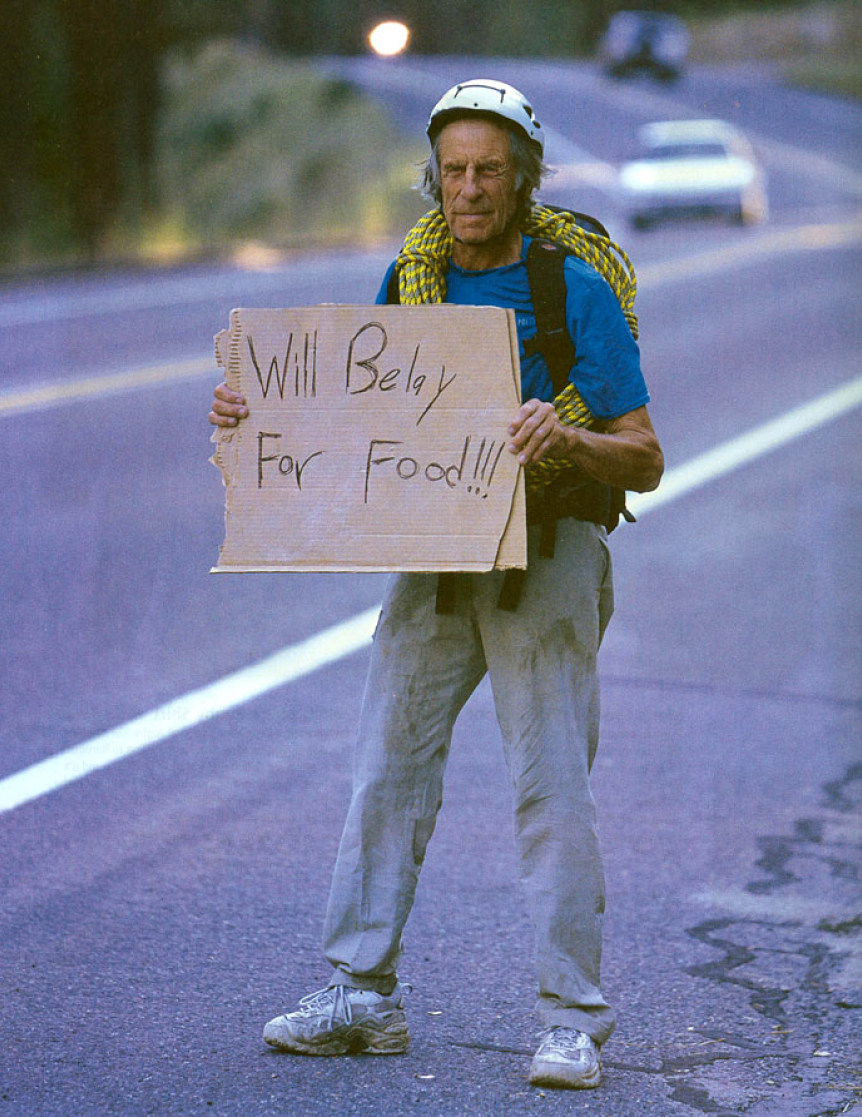 Will Belay
For Food!!!